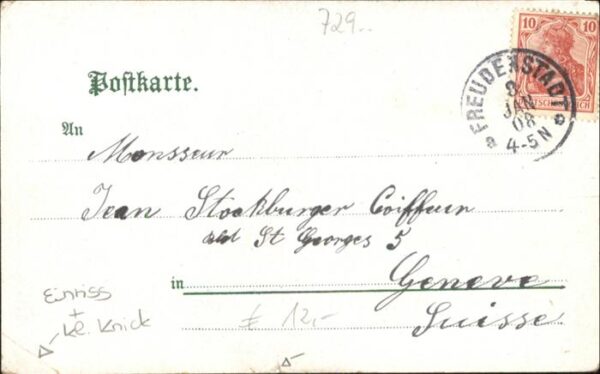 729..
10 10
Postkarte.
FREUDENSTADT
8
JAN
08
4-5N
An
Monsseur
Jean Stockburger Coiffeur
St Georges 5
in Geneve
Suisse
Einriss
+
kl. Knick
€ 12,-